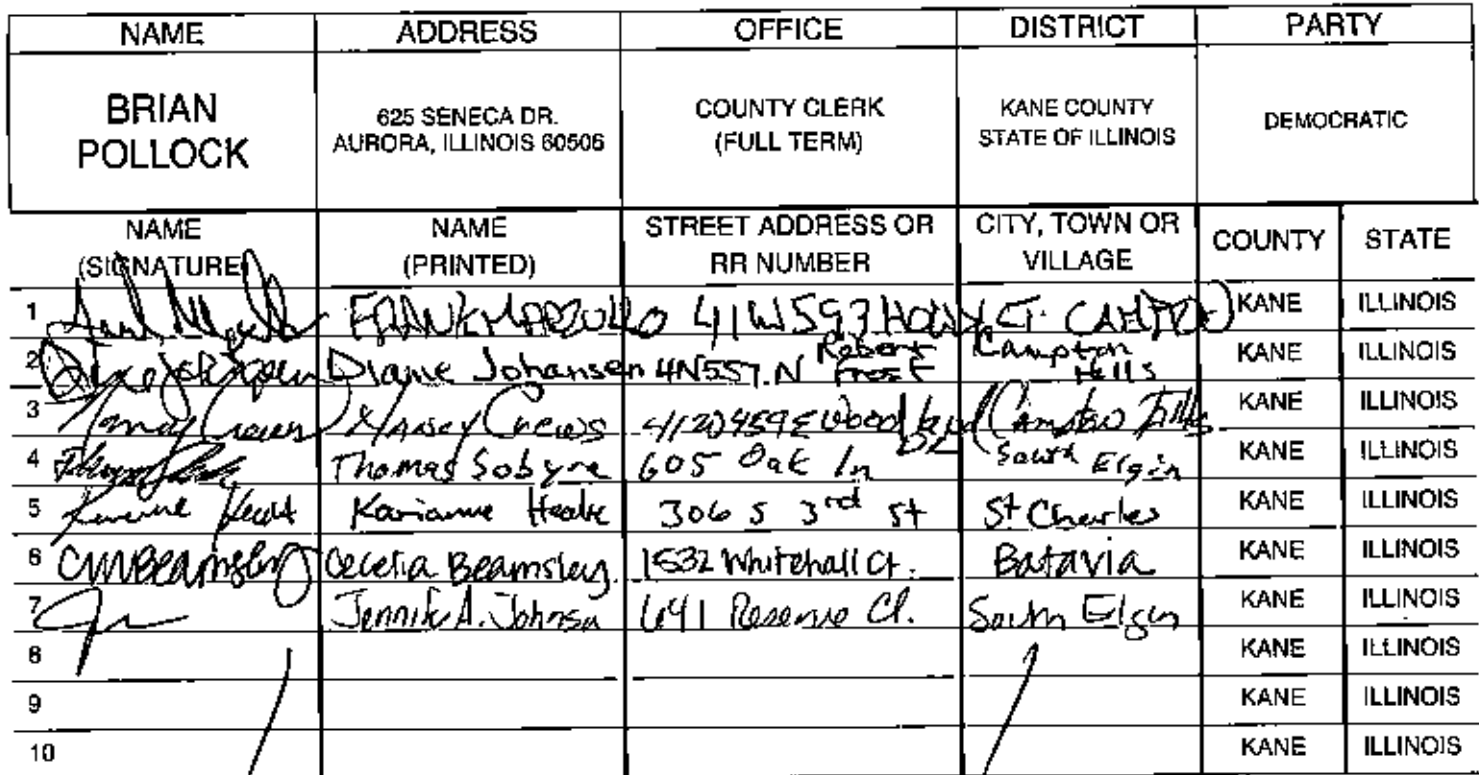 NAME ADDRESS OFFICE DISTRICT PARTY
BRIAN POLLOCK 625 SENECA DR. AURORA, ILLINOIS 60506 COUNTY CLERK (FULL TERM) KANE COUNTY STATE OF ILLINOIS DEMOCRATIC
NAME (SIGNATURE) NAME (PRINTED) STREET ADDRESS OR RR NUMBER CITY, TOWN OR VILLAGE COUNTY STATE
1 FRANK MARZULLO 41W593 CT. KANE ILLINOIS
2 Diane Johansen Diane Johansen 4N557 N Robert Frost Campton Hills KANE ILLINOIS
3 Nancy Crews Nancy Crews Campton Hills KANE ILLINOIS
4 Thomas 605 Oak ln South Elgin KANE ILLINOIS
5 Karianne 306 S 3rd St St Charles KANE ILLINOIS
6 CMBeamsley Cecelia Beamsley 1532 Whitehall Ct. Batavia KANE ILLINOIS
7 Jennifer A. Johnson 641 Reserve Ct. South Elgin KANE ILLINOIS
8 KANE ILLINOIS
9 KANE ILLINOIS
10 KANE ILLINOIS